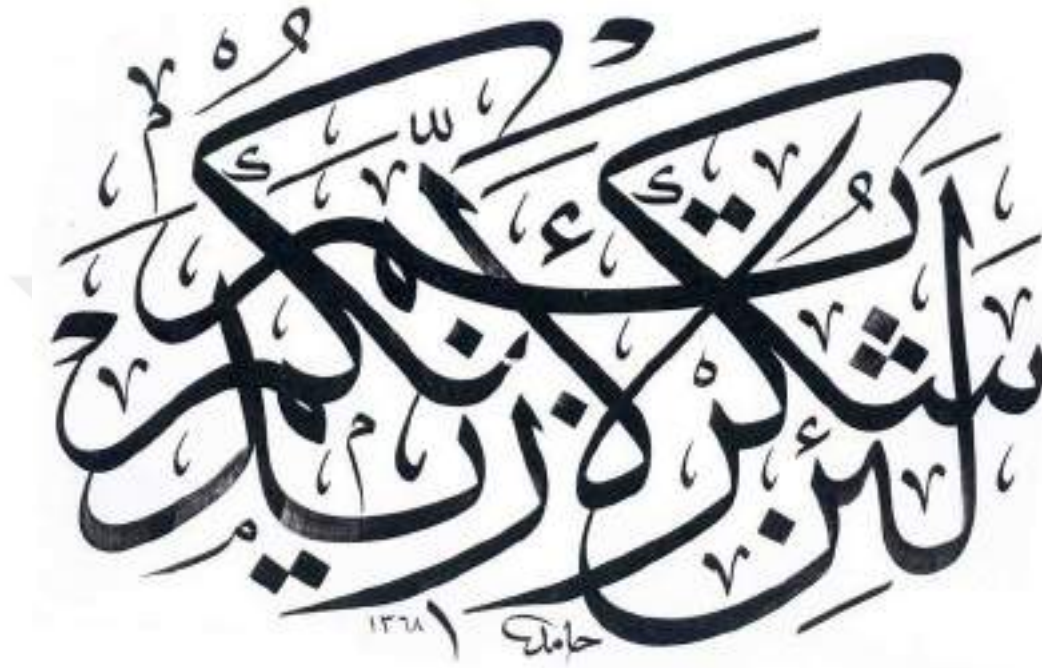 لَئِنْ شَكَرْتُمْ لَأَزِيدَنَّكُمْ
حامد ١٣٦٨